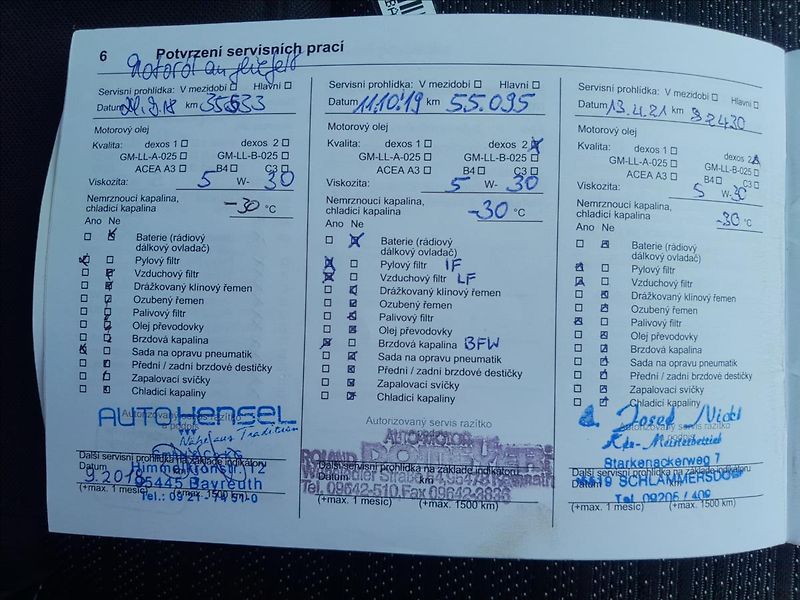 6 Potvrzení servisních prací
Motoröl angeliefert
Servisní prohlídka: V mezidobí Hlavní
Datum km 35533
Motorový olej
Kvalita: dexos 1 dexos 2
GM-LL-A-025 GM-LL-B-025
ACEA A3 B4 C3
Viskozita: 5 W- 30
Nemrznoucí kapalina,
chladicí kapalina -30 °C
Ano Ne
Baterie (rádiový
dálkový ovladač)
Pylový filtr
Vzduchový filtr
Drážkovaný klínový řemen
Ozubený řemen
Palivový filtr
Olej převodovky
Brzdová kapalina
Sada na opravu pneumatik
Přední / zadní brzdové destičky
Zapalovací svíčky
Chladicí kapaliny
Autorizovaný servis razítko
podpis
AUTO HENSEL
Näher aus Tradition
Další servisní prohlídka na základe indikátoru
Himmelkronstr. 12
Datum 9.2019
95445 Bayreuth
(+max. 1 mesíc) (+max. 1500 km)
Servisní prohlídka: V mezidobí Hlavní
Datum 11.10.19 km 55.095
Motorový olej
Kvalita: dexos 1 dexos 2
GM-LL-A-025 GM-LL-B-025
ACEA A3 B4 C3
Viskozita: 5 W- 30
Nemrznoucí kapalina,
chladicí kapalina -30 °C
Ano Ne
Baterie (rádiový
dálkový ovladač)
Pylový filtr IF
Vzduchový filtr LF
Drážkovaný klínový řemen
Ozubený řemen
Palivový filtr
Olej převodovky
Brzdová kapalina BFW
Sada na opravu pneumatik
Přední / zadní brzdové destičky
Zapalovací svíčky
Chladicí kapaliny
Autorizovaný servis razítko
AUTO-MOTOR
ROLAND
Další servisní prohlídka na základe indikátoru
Datum km
Tel. 09642-510, Fax 09642-3836
(+max. 1 mesíc) (+max. 1500 km)
Servisní prohlídka: V mezidobí Hlavní
Datum 13.4.21 km 92430
Motorový olej
Kvalita: dexos 1 dexos 2
GM-LL-A-025 GM-LL-B-025
ACEA A3 B4 C3
Viskozita: 5 W-30
Nemrznoucí kapalina,
chladicí kapalina -30 °C
Ano Ne
Baterie (rádiový
dálkový ovladač)
Pylový filtr
Vzduchový filtr
Drážkovaný klínový řemen
Ozubený řemen
Palivový filtr
Olej převodovky
Brzdová kapalina
Sada na opravu pneumatik
Přední / zadní brzdové destičky
Zapalovací svíčky
Chladicí kapaliny
Josef Nickl
Autorizovaný servis razítko
Kfz-Meisterbetrieb
Starkenackerweg 7
Další servisní prohlídka na základe indikátoru
SCHLAMMERSDORF
Datum km
Tel. 09205 / 409
(+max. 1 mesíc) (+max. 1500 km)